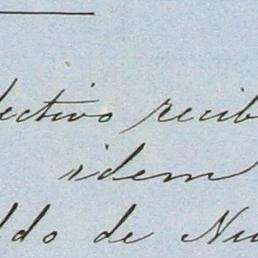 lectivo recib
idem
ldo de Nu